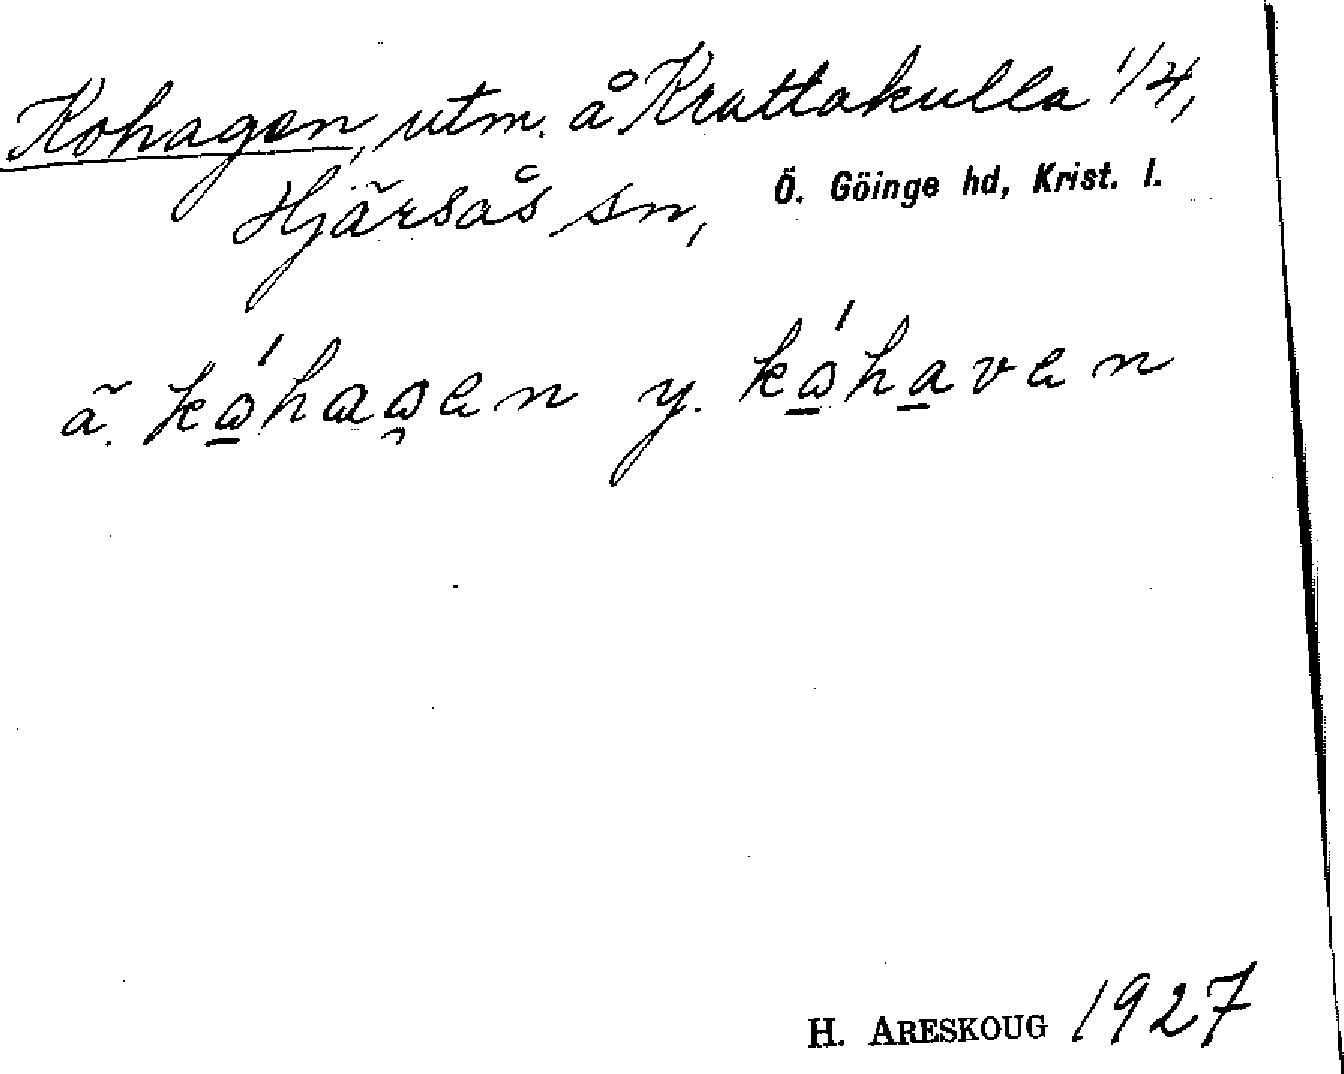 Kohagen, utm. å Krattakulla 1/4,
Hjärsås sn, Ö. Göinge hd, Krist. l.
ä. kóhagen y. kóhaven
H. ARESKOUG 1927